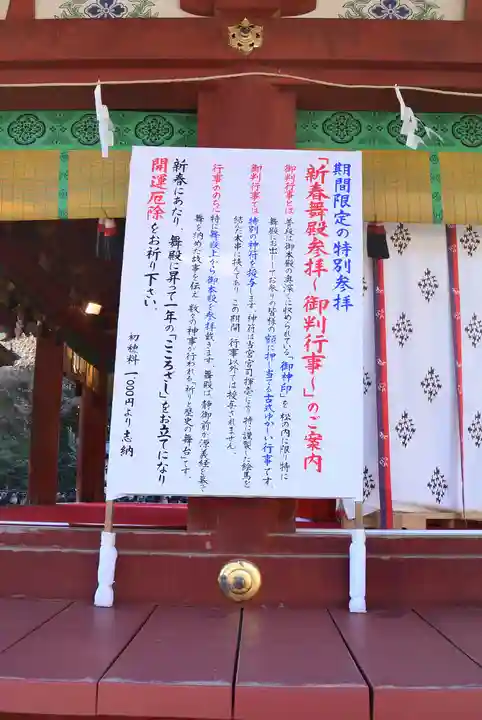 期間限定の特別参拝
「新春舞殿参拝～御判行事～」のご案内
御判行事とは
普段は御本殿の奥深くに収められている、「御神印」を松の内に限り特に
舞殿にお出ししてお参りの皆様の額に押し当てる古式ゆかしい行事です。
御判行事では
特別の神符を授与します。神符は当宮宮司揮毫により特に謹製した絵馬を
結んだ本事に挟んであり、この期間、行事以外では授与されません。
行事ののちは
特に舞殿上から御本殿を参拝戴きます。舞殿は、静御前が源義経を慕って
舞を納めた故事を伝え、数々の神事が行われる「祈りと歴史の舞台」です。
新春にあたり、舞殿に昇って一年の「こころざし」をお立てになり
開運厄除をお祈り下さい。
初穂料 一、〇〇〇円より志納